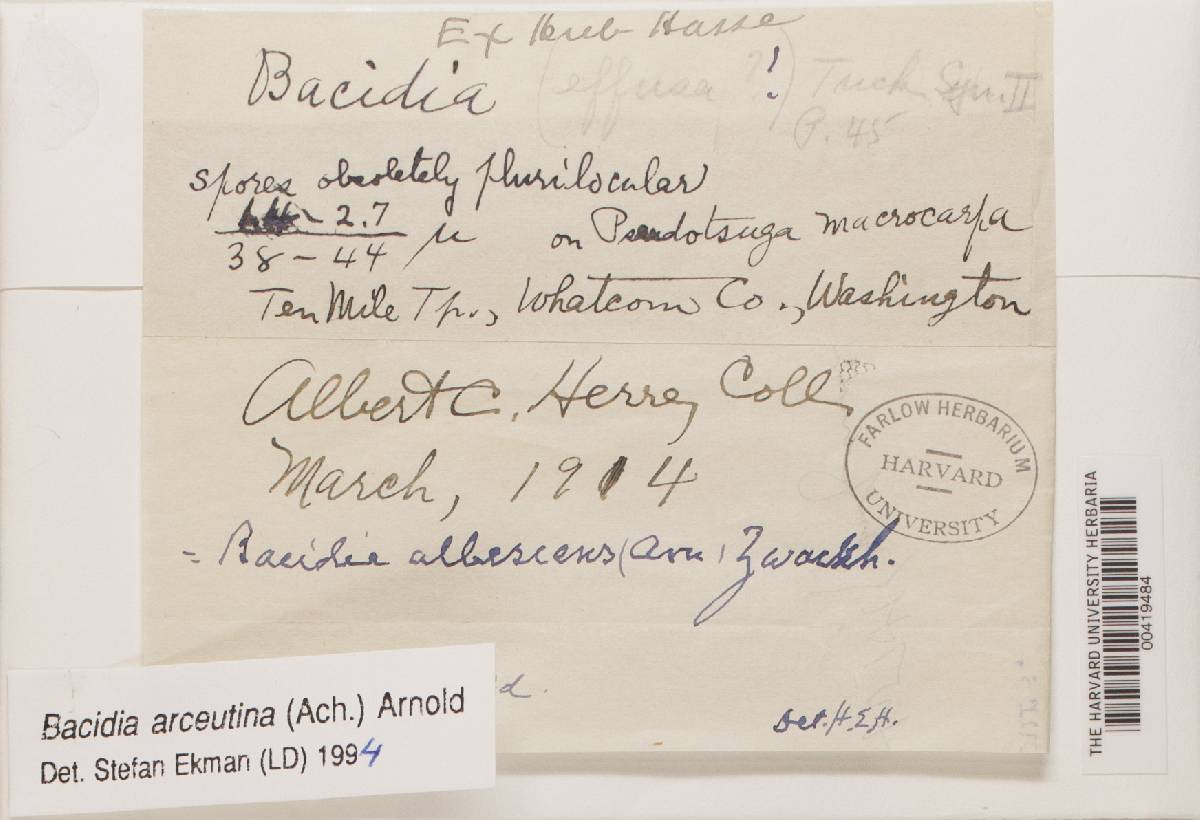 Ex Herb Hasse
Bacidia (effusa ?!) Tuck Syn. II
P. 45
spores obsoletely plurilocular
2.7
38 – 44 µ on Pseudotsuga macrocarpa
Ten Mile Tp., Whatcom Co., Washington
Albert C. Herre, Coll.
March, 1914
FARLOW HERBARIUM
HARVARD
UNIVERSITY
= Bacidia albescens (Arn.) Zwackh.
d.
Det. H.E.H.
Bacidia arceutina (Ach.) Arnold
Det. Stefan Ekman (LD) 1994
THE HARVARD UNIVERSITY HERBARIA
00419484